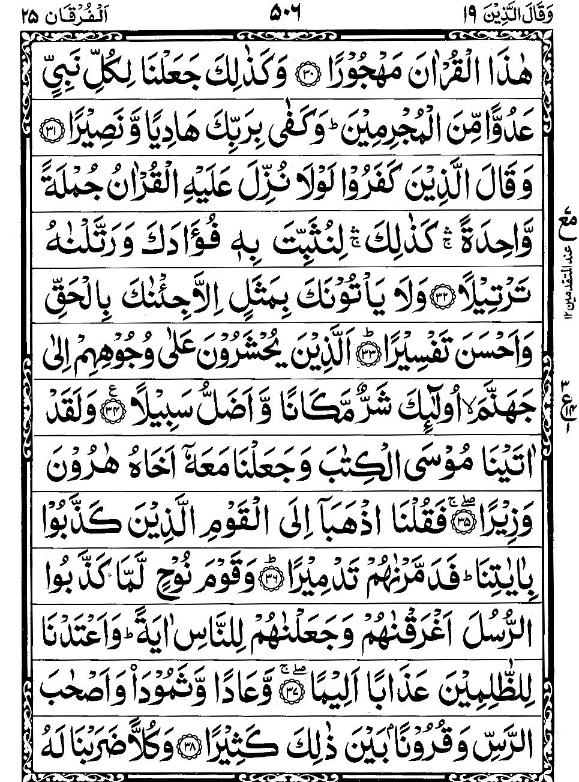 وَقَالَ الَّذِيْنَ ١٩ ٥٠٦ اَلْفُرْقَان ٢٥
هٰذَا الْقُرْاٰنَ مَهْجُوْرًا ﴿٣٠﴾ وَكَذٰلِكَ جَعَلْنَا لِكُلِّ نَبِيٍّ
عَدُوًّا مِّنَ الْمُجْرِمِيْنَ ؕ وَكَفٰى بِرَبِّكَ هَادِيًا وَّنَصِيْرًا ﴿٣١﴾
وَقَالَ الَّذِيْنَ كَفَرُوْا لَوْلَا نُزِّلَ عَلَيْهِ الْقُرْاٰنُ جُمْلَةً
وَّاحِدَةً ۛۚ كَذٰلِكَ ۛۚ لِنُثَبِّتَ بِهٖ فُؤَادَكَ وَرَتَّلْنٰهُ
تَرْتِيْلًا ﴿٣٢﴾ وَلَا يَاْتُوْنَكَ بِمَثَلٍ اِلَّا جِئْنٰكَ بِالْحَقِّ
وَاَحْسَنَ تَفْسِيْرًا ﴿٣٣﴾ؕ اَلَّذِيْنَ يُحْشَرُوْنَ عَلٰى وُجُوْهِهِمْ اِلٰى
جَهَنَّمَ ۙ اُولٰٓئِكَ شَرٌّ مَّكَانًا وَّاَضَلُّ سَبِيْلًا ﴿٣٤﴾ۧ وَلَقَدْ
اٰتَيْنَا مُوْسَى الْكِتٰبَ وَجَعَلْنَا مَعَهٗۤ اَخَاهُ هٰرُوْنَ
وَزِيْرًا ﴿٣٥﴾ۖۚ فَقُلْنَا اذْهَبَاۤ اِلَى الْقَوْمِ الَّذِيْنَ كَذَّبُوْا
بِاٰيٰتِنَا ؕ فَدَمَّرْنٰهُمْ تَدْمِيْرًا ﴿٣٦﴾ؕ وَقَوْمَ نُوْحٍ لَّمَّا كَذَّبُوا
الرُّسُلَ اَغْرَقْنٰهُمْ وَجَعَلْنٰهُمْ لِلنَّاسِ اٰيَةً ؕ وَاَعْتَدْنَا
لِلظّٰلِمِيْنَ عَذَابًا اَلِيْمًا ﴿٣٧﴾ۖۚ وَّعَادًا وَّثَمُوْدَا۟ وَاَصْحٰبَ
الرَّسِّ وَقُرُوْنًۢا بَيْنَ ذٰلِكَ كَثِيْرًا ﴿٣٨﴾ وَكُلًّا ضَرَبْنَا لَهُ
مع
عند المتقدمين ١٢
٣
ع